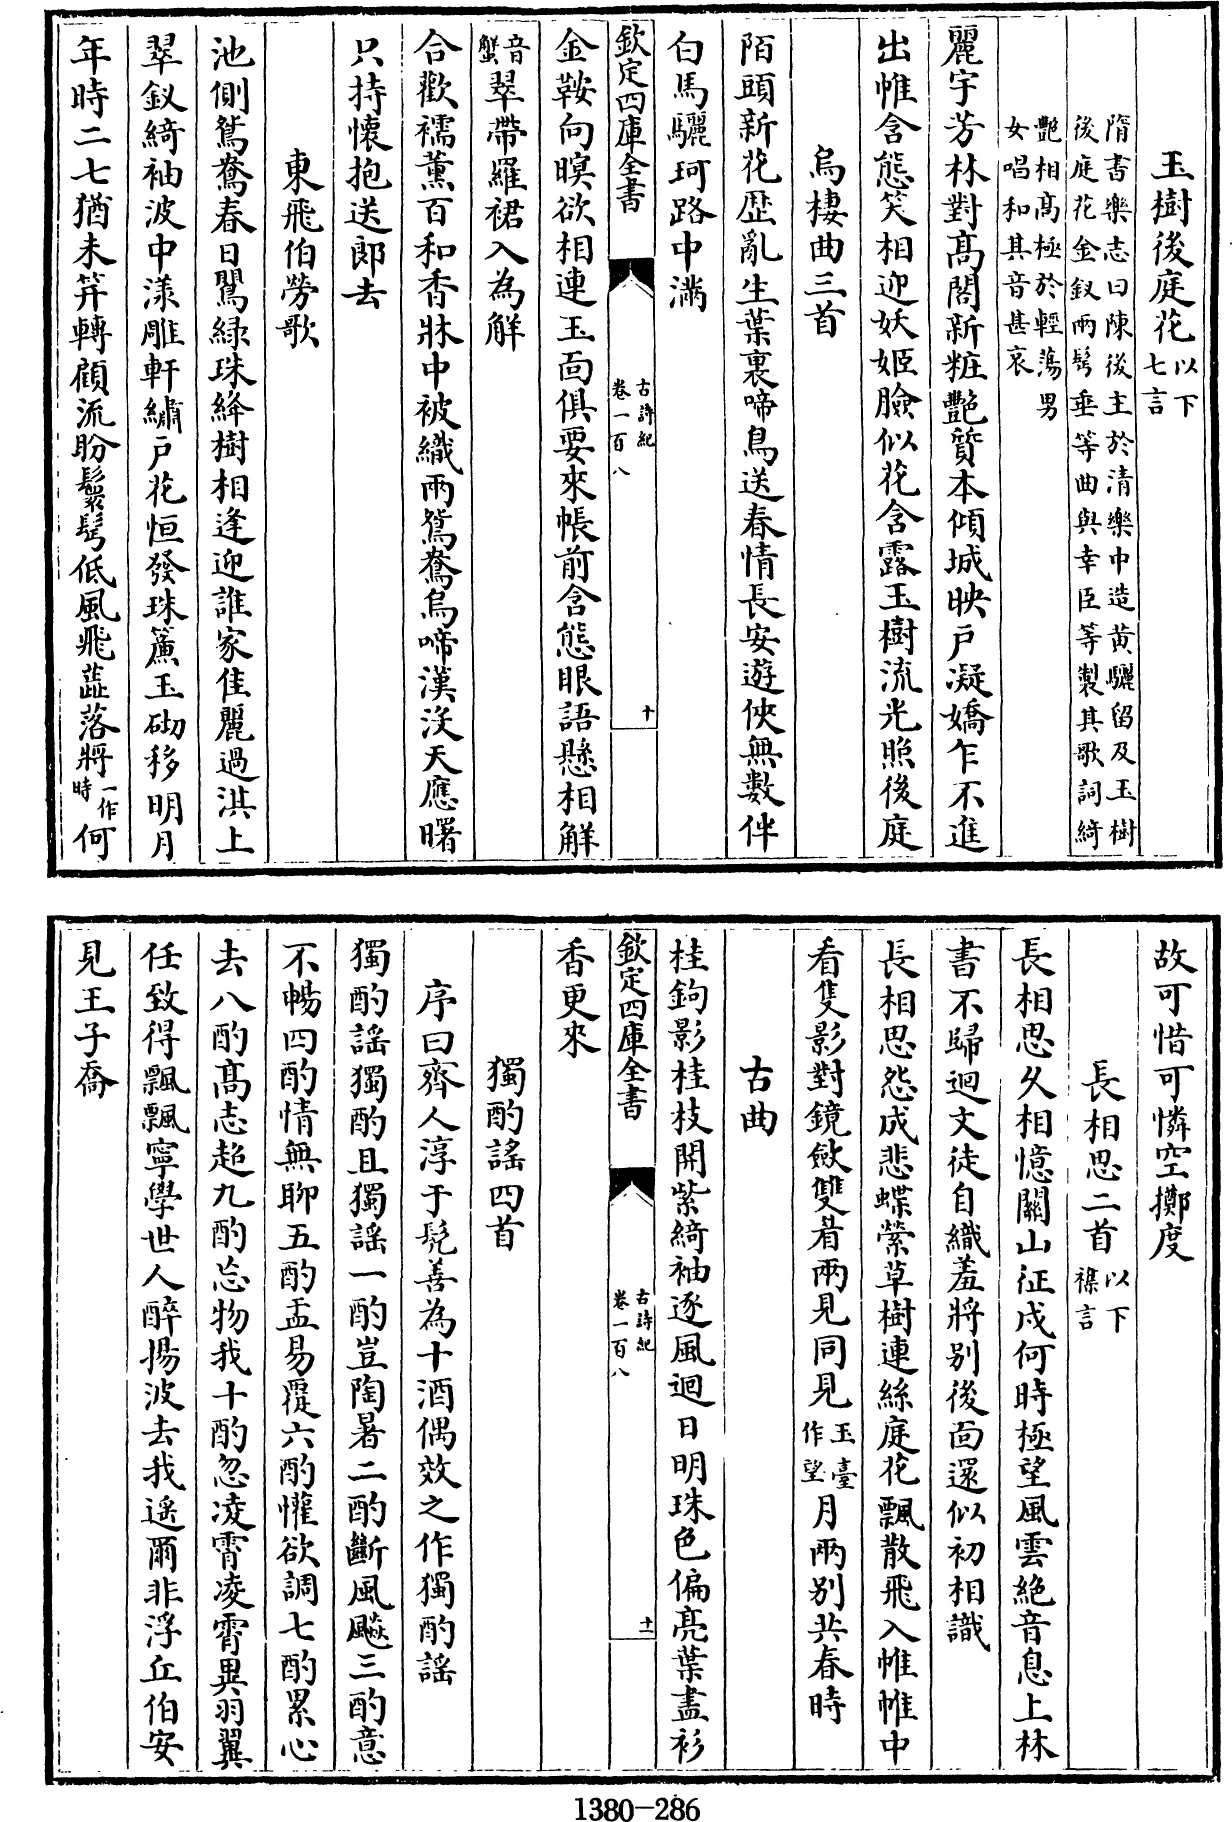 玉樹後庭花以下七言
隋書樂志曰陳後主於清樂中造黄驪留及玉樹
後庭花金釵兩鬢垂等曲與幸臣等製其歌詞綺
艶相髙極於輕蕩男
女唱和其音甚哀
麗宇芳林對髙閣新粧艶質本傾城映戸凝嬌乍不進
出帷含態笑相迎妖姬臉似花含露玉樹流光照後庭
烏棲曲三首
陌頭新花歴亂生葉裏啼鳥送春情長安遊俠無數伴
白馬驪珂路中滿
欽定四庫全書
古詩紀
卷一百八
十
金鞍向暝欲相連玉面俱要來帳前含態眼語懸相解
音蟹翠帶羅裙入為解
合歡襦薰百和香牀中被織兩鴛鴦烏啼漢没天應曙
只持懷抱送郎去
東飛伯勞歌
池側鴛鴦春日鸎緑珠絳樹相逢迎誰家佳麗過淇上
翠釵綺袖波中漾雕軒繡戸花恒發珠簾玉砌移明月
年時二七猶未笄轉顧流盼鬟鬢低風飛蘂落將一作時何
故可惜可憐空擲度
長相思二首以下襍言
長相思久相憶關山征戍何時極望風雲絶音息上林
書不歸迴文徒自織羞將别後面還似初相識
長相思怨成悲蝶縈草樹連絲庭花飄散飛入帷帷中
看隻影對鏡斂雙眉兩見同見玉臺作望月兩别共春時
古曲
桂鉤影桂枝開紫綺袖逐風迴日明珠色偏亮葉盡衫
欽定四庫全書
古詩紀
卷一百八
十一
香更來
獨酌謡四首
序曰齊人淳于髡善為十酒偶效之作獨酌謡
獨酌謡獨酌且獨謡一酌豈陶暑二酌斷風飈三酌意
不暢四酌情無聊五酌盂易覆六酌懽欲調七酌累心
去八酌髙志超九酌忘物我十酌忽凌霄凌霄異羽翼
任致得飄飄寧學世人醉揚波去我遥爾非浮丘伯安
見王子喬
1380-286